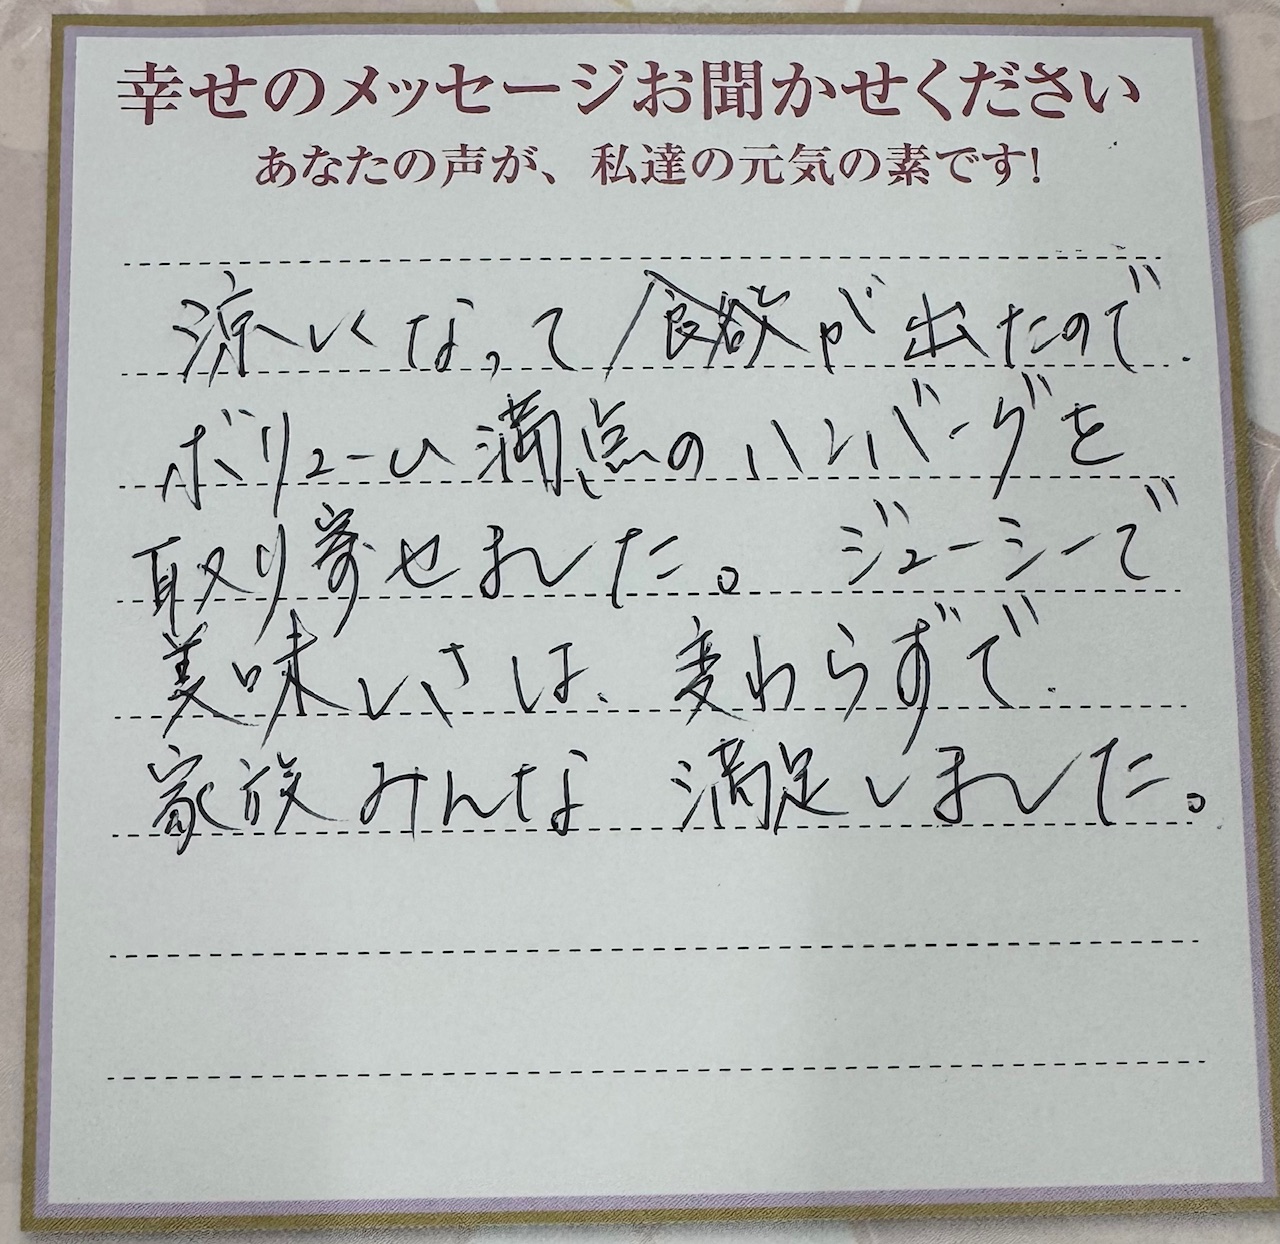 幸せのメッセージお聞かせください
あなたの声が、私達の元気の素です!
涼しくなって食欲が出たので
ボリューム満点のハンバーグを
取り寄せました。ジューシーで
美味しさは、変わらずで
家族みんな満足しました。